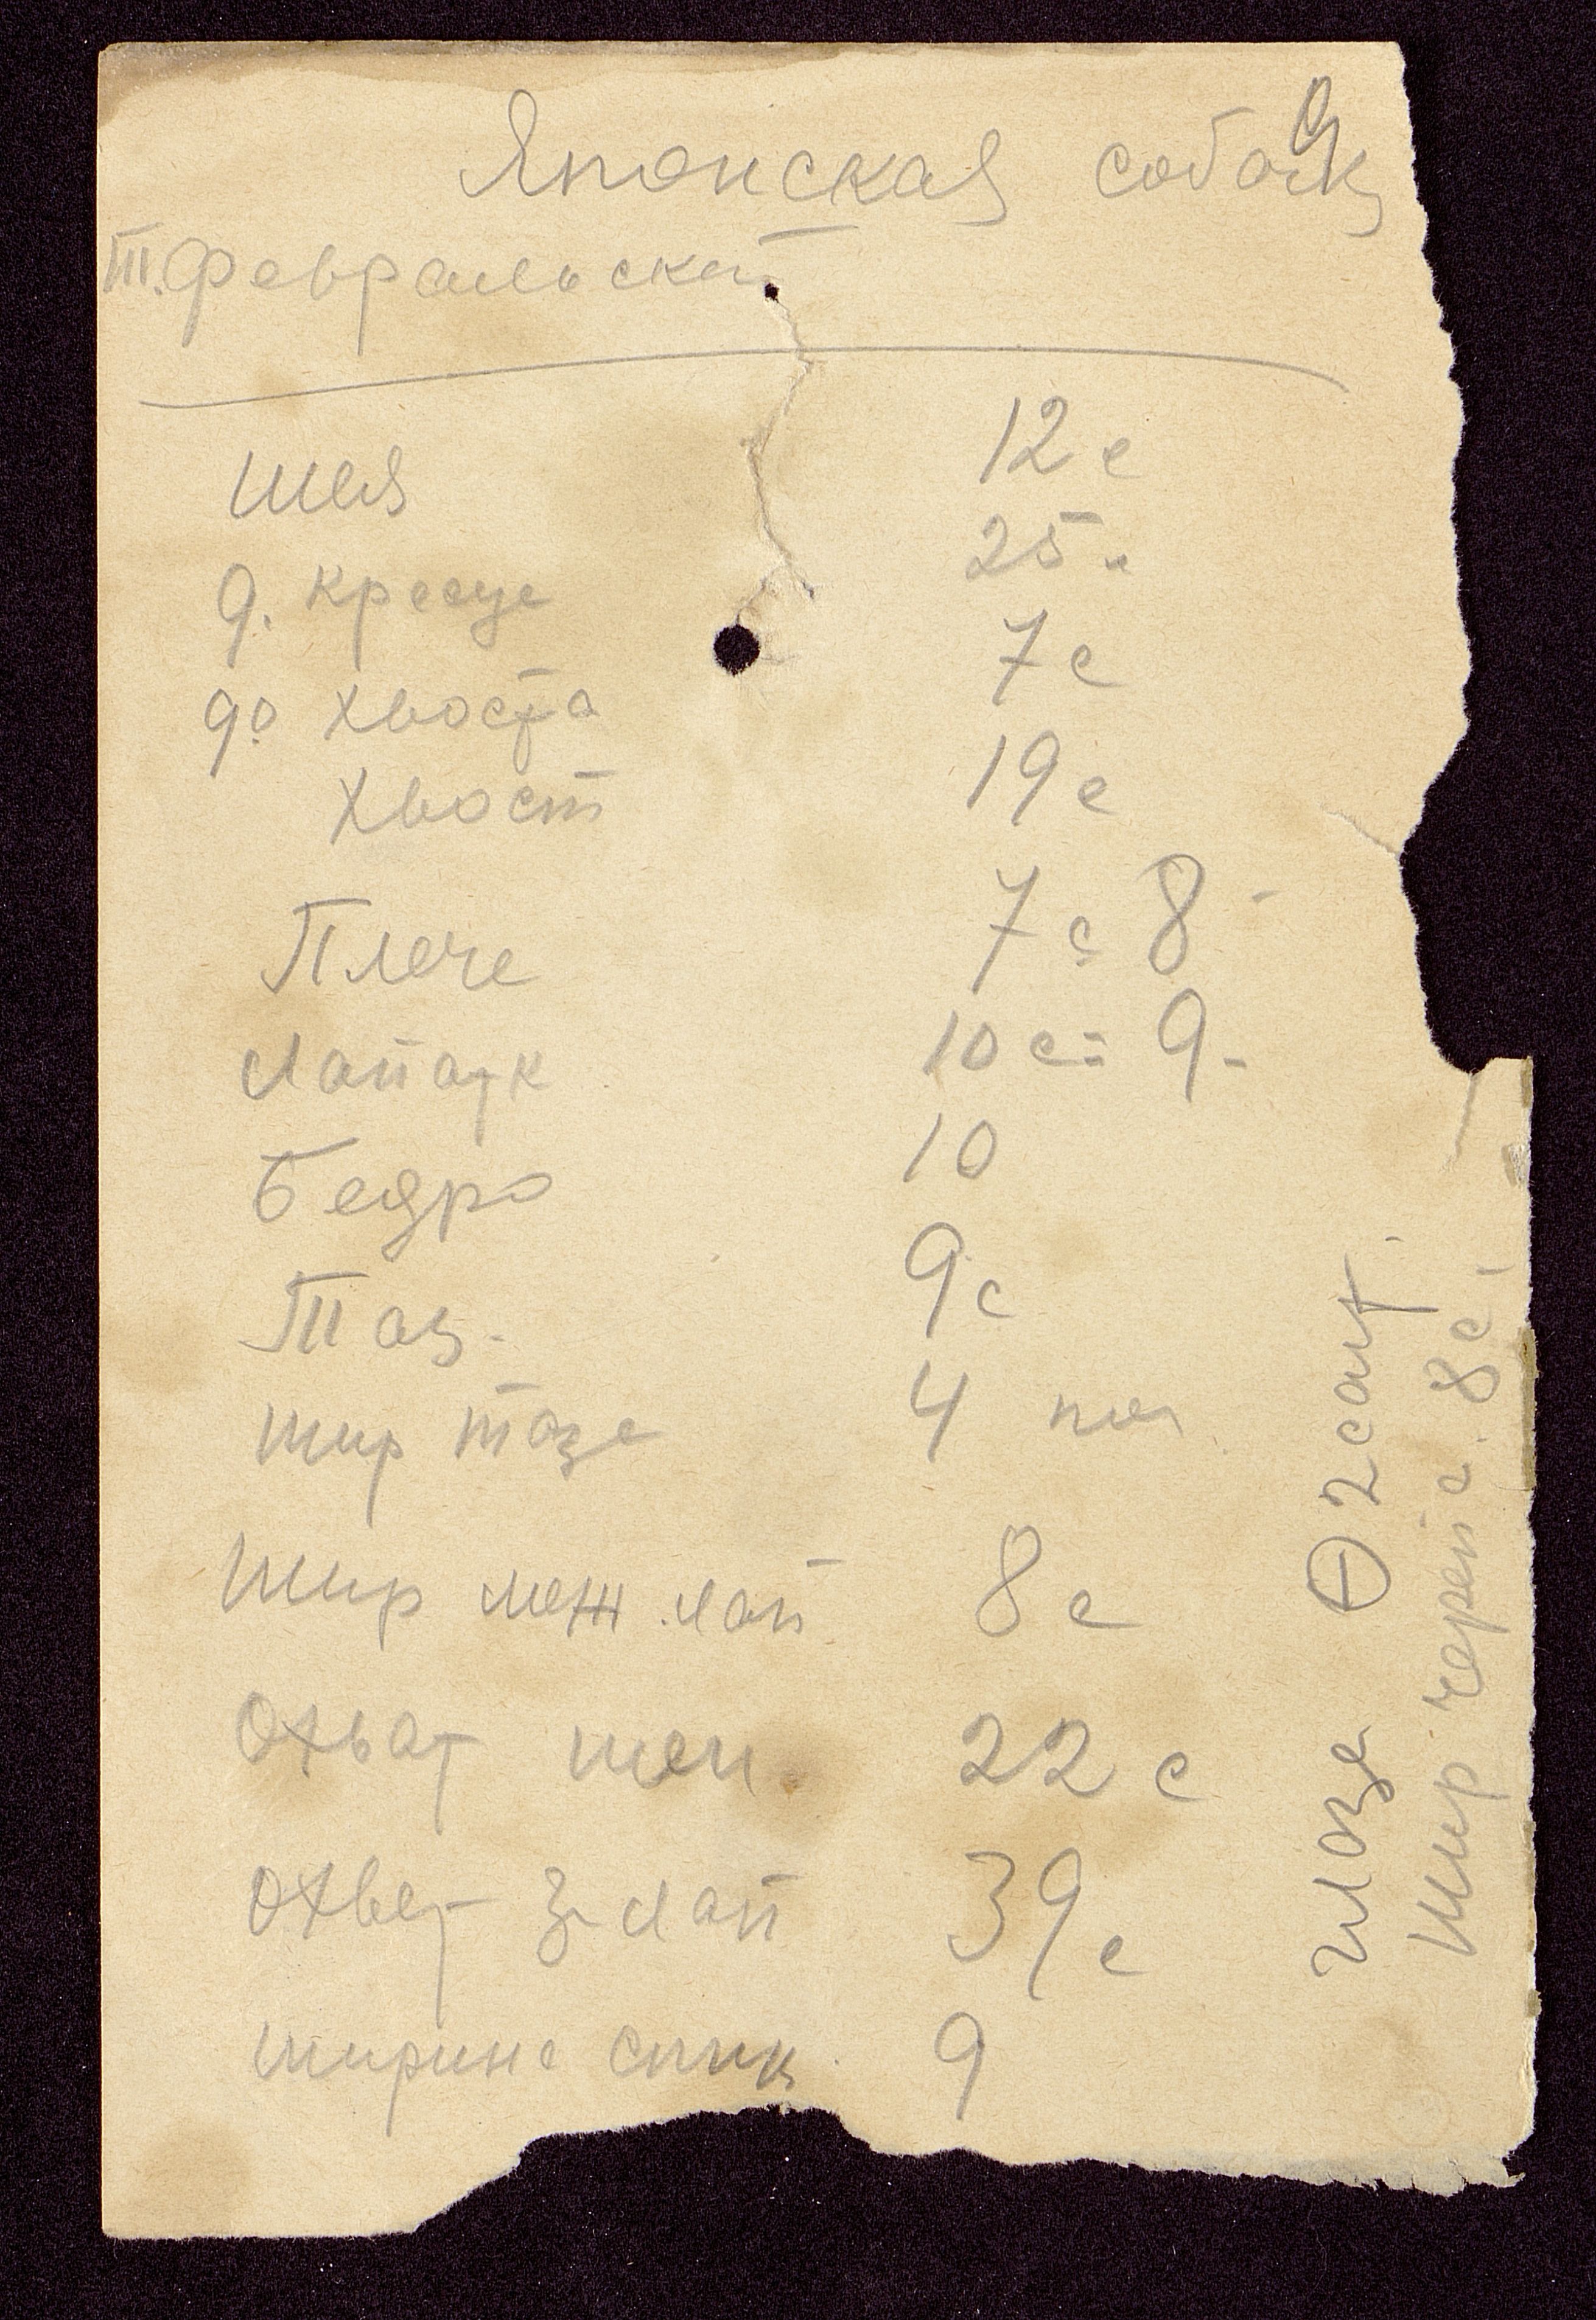 Японская собачк
т. Февральской
Шея 12 с
д. кресце 25 "
до хвоста 7 с
Хвост 19 с
Плече 7 с = 8 -
Лапатк 10 с = 9 -
Бедро 10
Таз. 9 с
шир тазе 4
Шир меж лап 8 с
Охват шеи 22 с
Охват з лап 39 с
ширине спик 9
глаза 2 сант.
Шир черепа. 8 с.